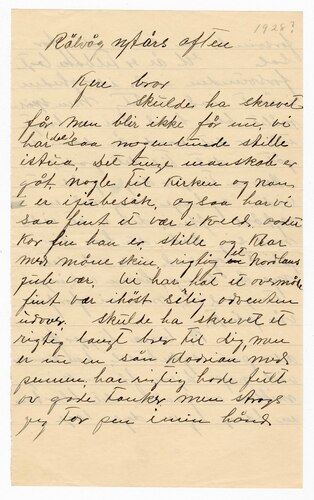 1928?
Rälvåg nytårs aften
Kjere bror
Skulde ha skrevet
før men blir ikke før nu, vi
har det saa nogenlunde stille
i stua, det unge manskab er
gåt, nogle til Kirken og nan
i er i jubesåk, og saa har vi
saa fint et vær i kveld,
kor fin han er, stille og klar
med måne skin, rigtig et Nordlans
jule vær, vi har hat et ovsmåte
fint vær i høst selig adventen
udover. skulde ha skrevet et
rigtig langt brev til dig, men
er nu en sån kladrian med
pennen, har rigtig hode fult
ov gode tanker men straks
jeg tar pen i min hånd